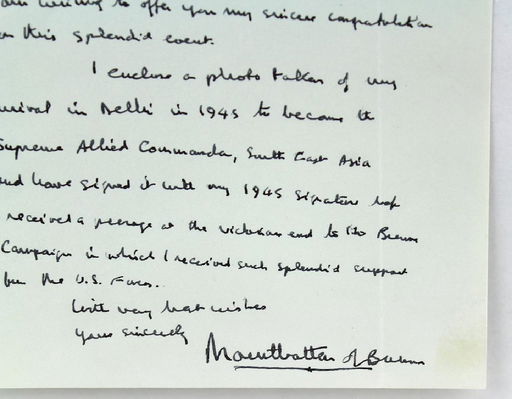 am writing to offer you my sincere congratulations
on this splendid event.
I enclose a photo taken of my
arrival in Delhi in 1945 to become the
Supreme Allied Commander, South East Asia
and have signed it with my 1945 signature
I received a peerage at the victorious end to the Burma
Campaign in which I received such splendid support
from the U.S. Forces.
With very best wishes
Yours sincerely
Mountbatten of Burma